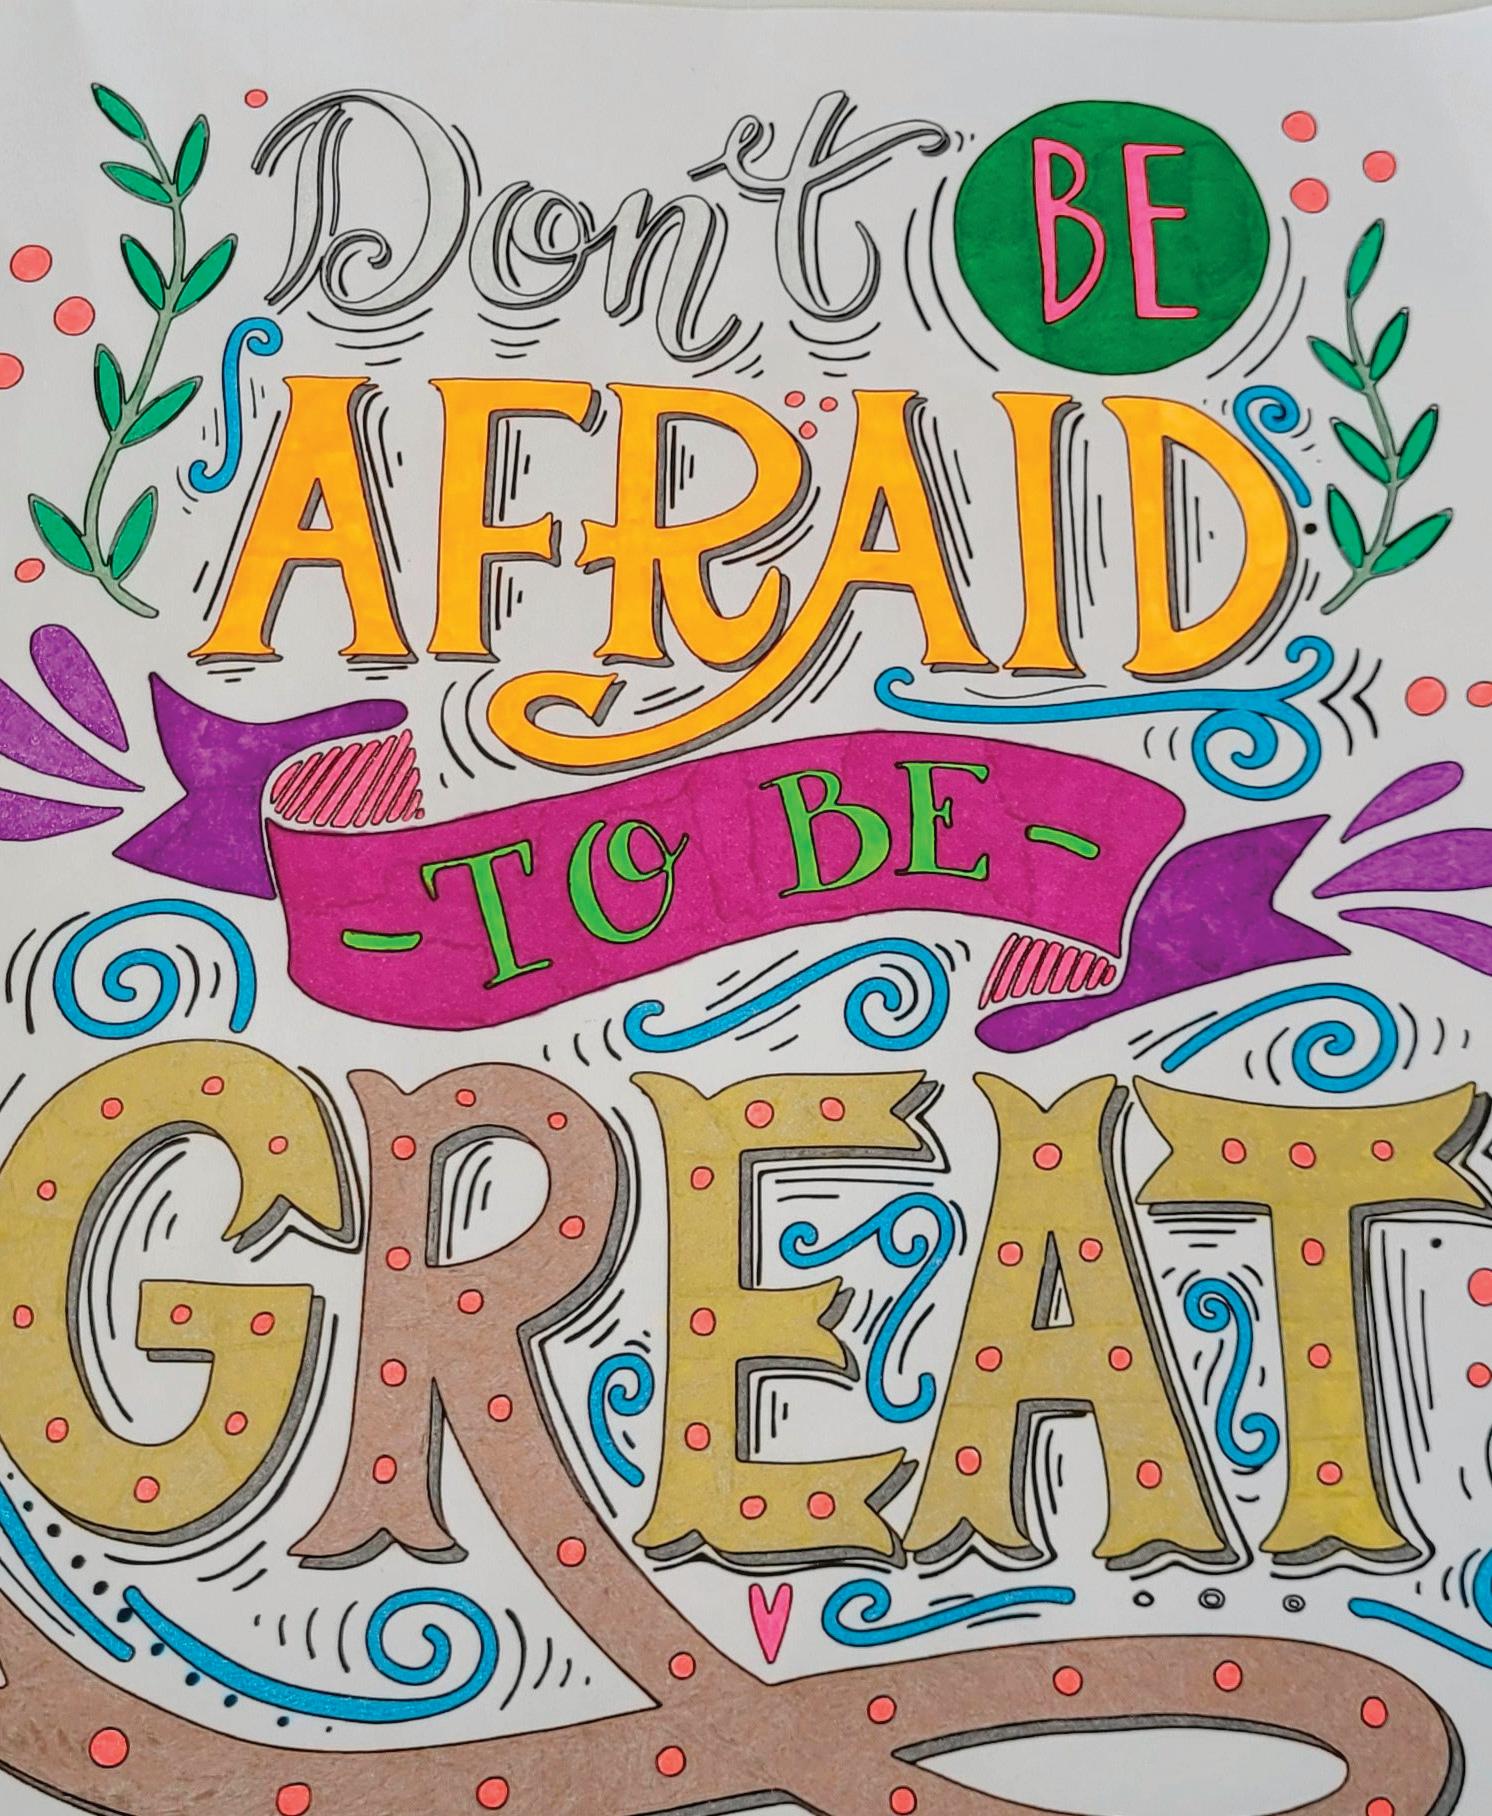 Don't BE
AFRAID
-TO BE-
GREAT